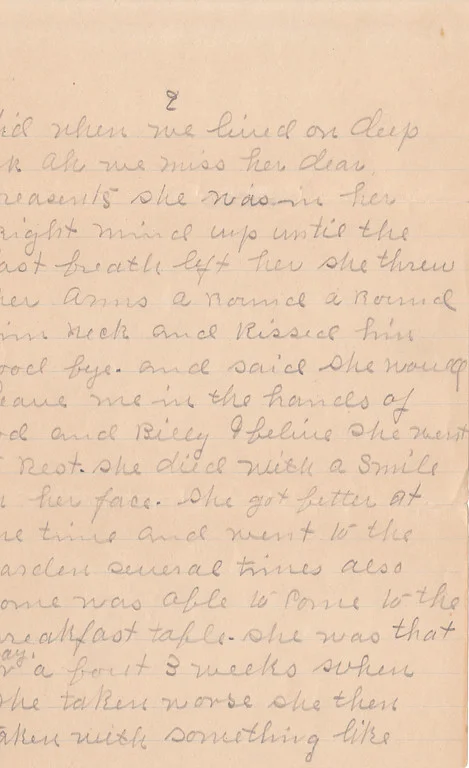 2
id when we lived on deep
k ah we miss her dear
reasents she was in her
right mind up until the
ast breath left her she threw
her arms a round a round
im neck and Kissed him
ood bye. and said she would
leave me in the hands of
od and Billy I belive she went
Rest. she died with a Smile
her face. she got better at
ne time and went to the
arden several times also
ome was able to Come to the
reakfast table. she was that
way.
a bout 3 weeks when
she taken worse she then
aken with something like